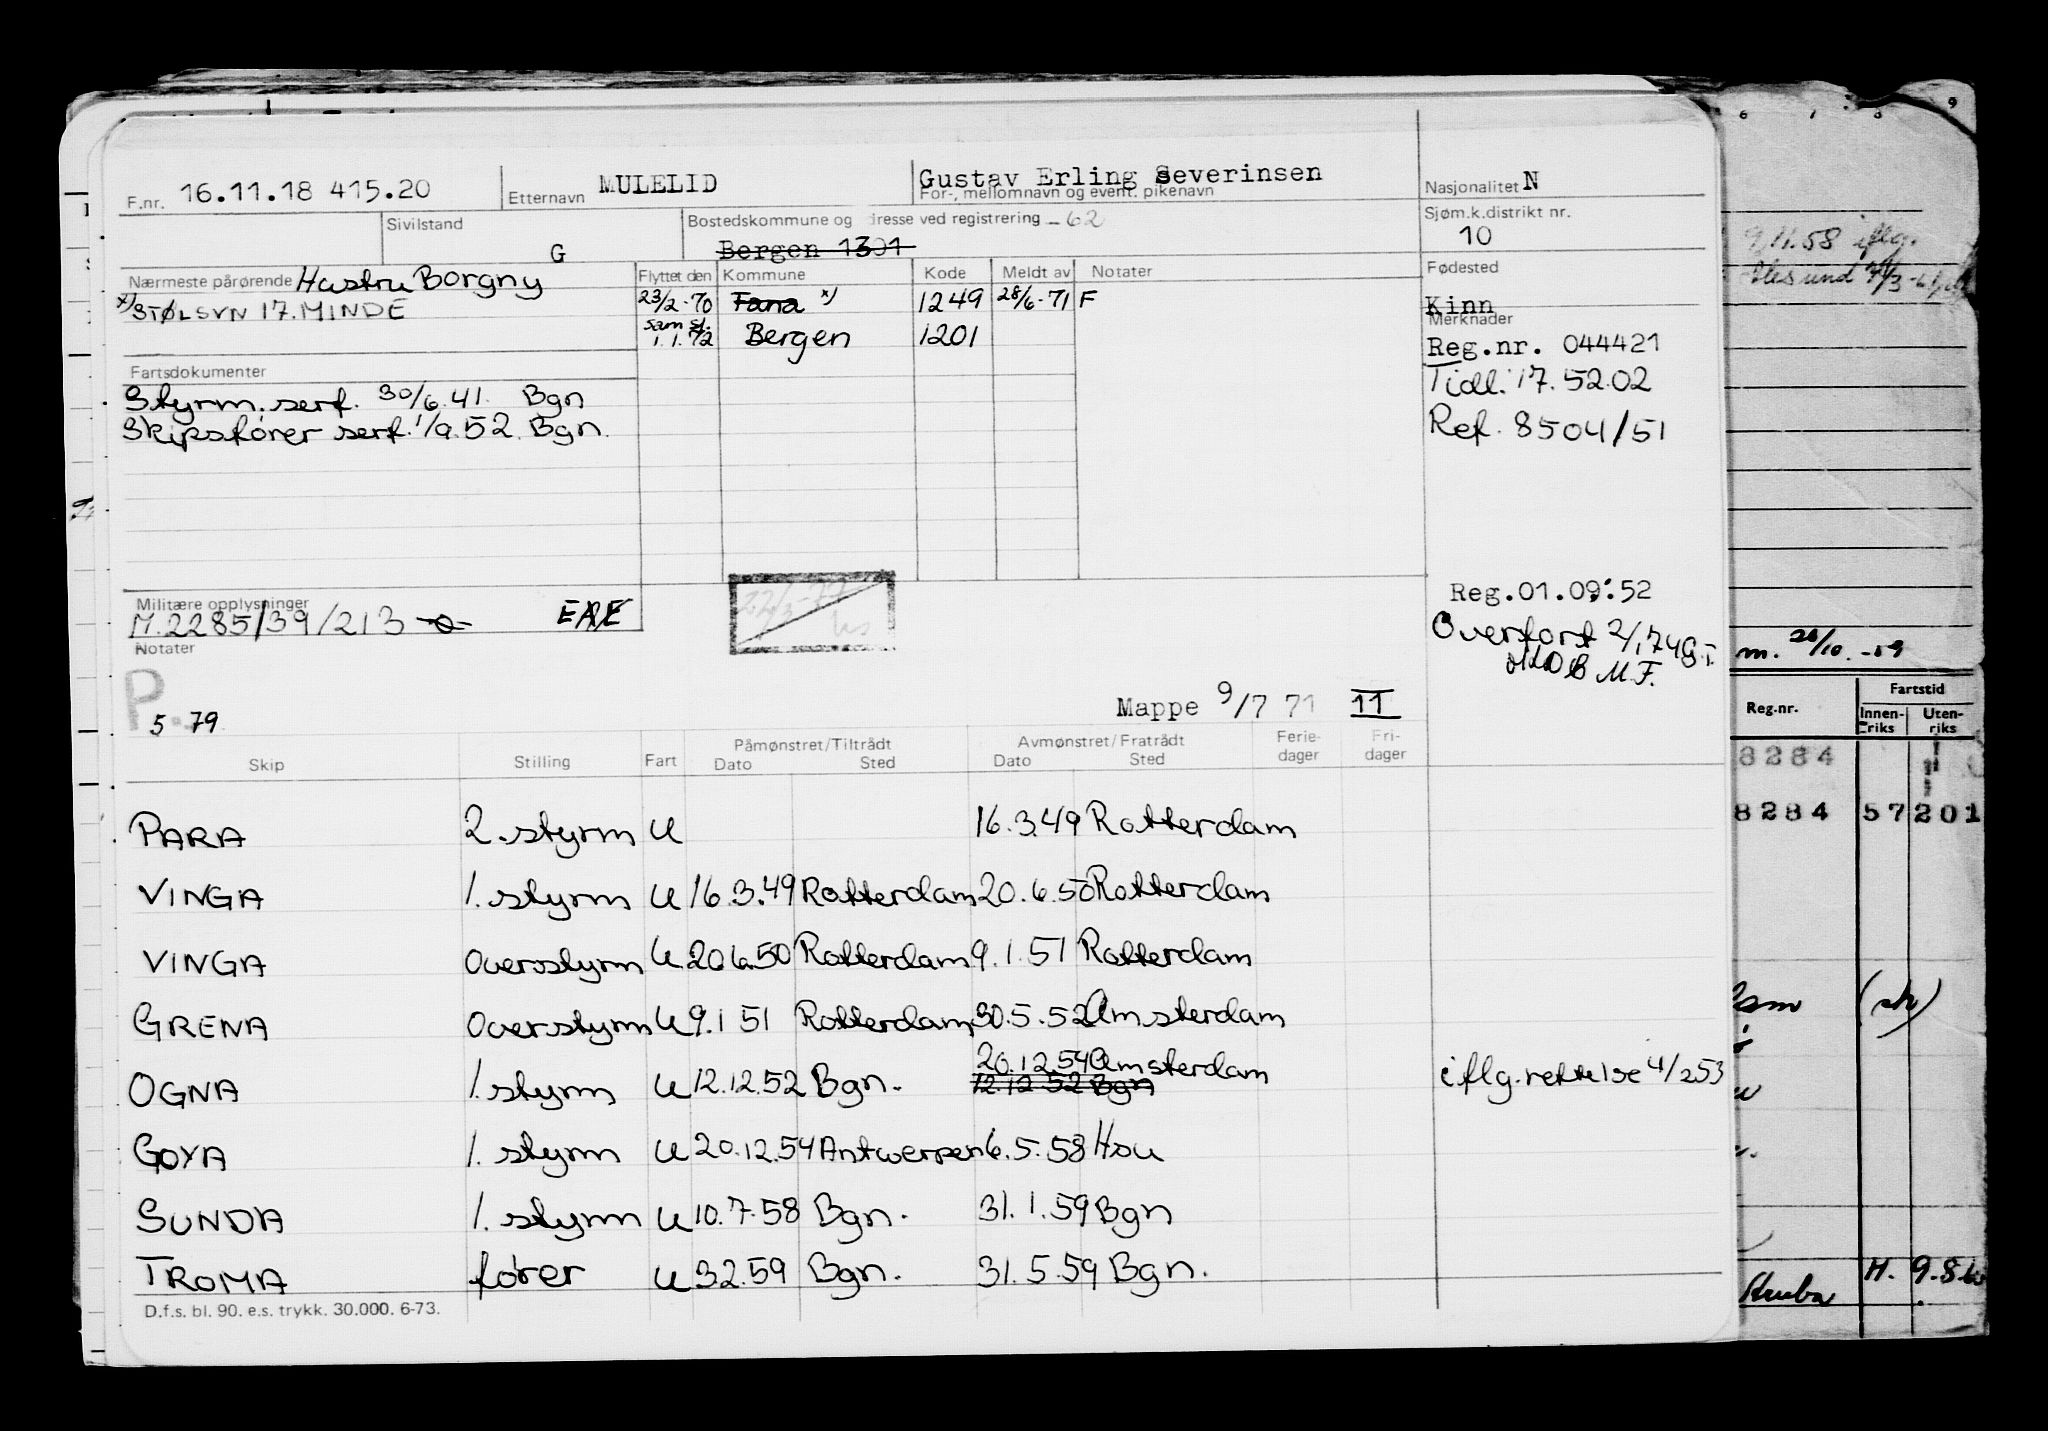 F.nr. 16.11.18 415.20 Etternavn MULELID Gustav Erling Severinsen For-, mellomnavn og event. pikenavn Nasjonalitet N
Sivilstand G Bostedskommune og dresse ved registrering - 62 Sjøm.k.distrikt nr. 10
Bergen 1301
Nærmeste pårørende Hustru Borgny Flyttet den Kommune Kode Meldt av Notater Fødested
x) STØLSVN 17. MINDE 23/2-70 Fana x) 1249 28/6-71 F Kinn
sam sl. 1.1.72 Bergen 1201 Merknader
Reg.nr. 044421
Fartsdokumenter Tidl. 17.52.02
Styrm. serf. 30/6.41. Bgn
Skipsfører serf. 1/9.52. Bgn. Ref. 8504/51
Militære opplysninger Reg.01.09.52
M.2285/39/213 Overført 2/1 74
Notater M.F.
P.
5 79
Mappe 9/7 71 11
Skip Stilling Fart Påmønstret/Tiltrådt Dato Sted Avmønstret/Fratrådt Dato Sted Ferie-dager Fri-dager
PARA 2. styrm U 16.3.49 Rotterdam
VINGA 1. styrm U 16.3.49 Rotterdam 20.6.50 Rotterdam
VINGA Overstyrm U 20.6.50 Rotterdam 9.1.51 Rotterdam
GRENA Overstyrm U 9.1 51 Rotterdam 30.5.52 Amsterdam
20.12.54 Amsterdam
OGNA 1. styrm U 12.12.52 Bgn. 12.12 52 Bgn iflg. rettelse 4/2 53
GOYA 1. styrm U 20.12.54 Antwerpen 6.5.58 Hou
SUNDA 1. styrm U 10.7.58 Bgn. 31.1.59 Bgn
TROMA fører U 3.2.59 Bgn. 31.5.59 Bgn.
D.f.s. bl. 90. e.s. trykk. 30.000. 6-73.
9.11.58 iflg.
m. 26/10.-59
Reg.nr. Fartstid
Innen-riks Uten-riks
8284
8284 57 201
(sk)
H. 9.8.60